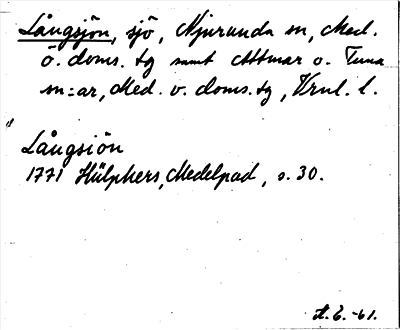 Långsjön, sjö, Njurunda sn, Med.
ö. doms. tg samt Attmar o. Tuna
sn:ar, Med. v. doms. tg, Vrnl. l.
Långsiön
1771 Hülphers, Medelpad, s. 30.
A. E. -61.